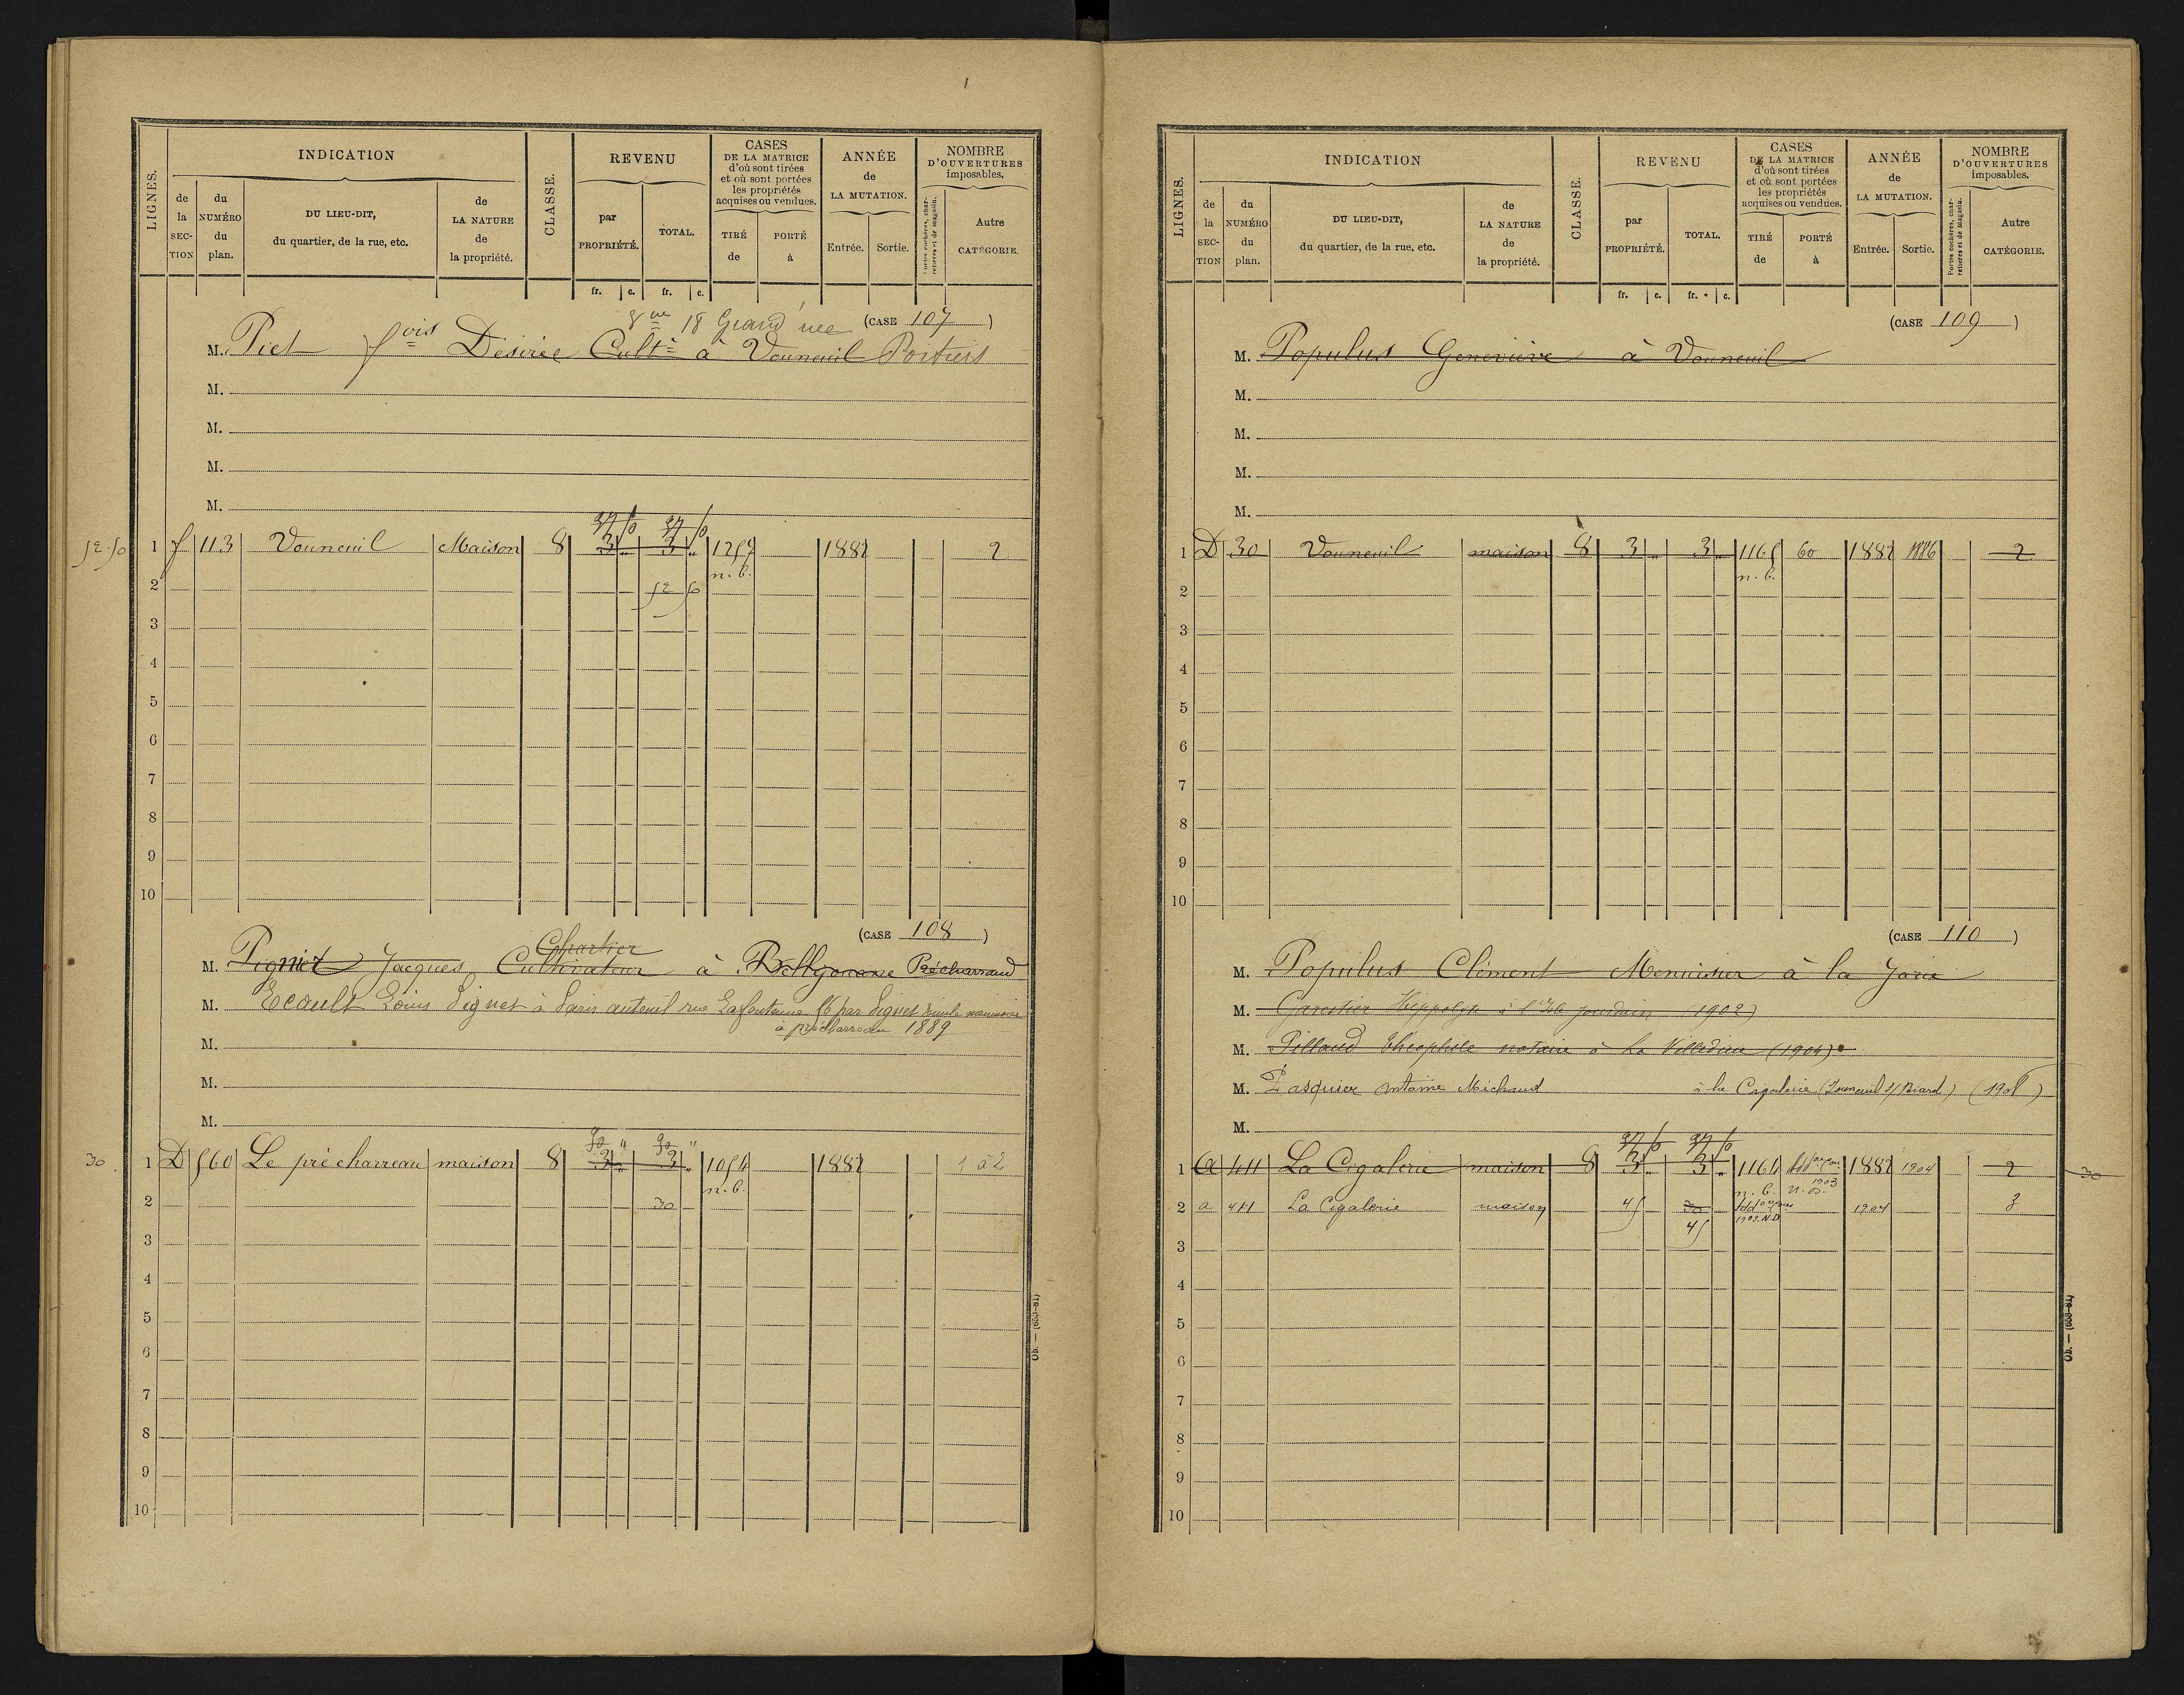 1
LIGNES.
INDICATION
de la SECTION
du NUMÉRO du plan.
DU LIEU-DIT, du quartier, de la rue, etc.
de LA NATURE de la propriété.
CLASSE.
REVENU
par PROPRIÉTÉ.
TOTAL.
fr. c. fr. c.
CASES DE LA MATRICE d'où sont tirées et où sont portées les propriétés acquises ou vendues.
TIRÉ de
PORTÉ à
ANNÉE de LA MUTATION.
Entrée. Sortie.
NOMBRE D'OUVERTURES imposables.
Portes cochères, charretières et de magasin.
Autre CATÉGORIE.
18 Grand'rue (CASE 107)
M. Piet fois Désirée Cultr à Vouneuil Poitiers
M.
M.
M.
M.
52.50 1 f 113 Vouneuil Maison 8 3 " 3 " 1257 1882 2
37 50 37 50
n. b.
2 52 50
3
4
5
6
7
8
9
10
(CASE 108)
Chartier
M. Pigniet Jacques Cultivateur à Précharreau
M. Ecault Louis Signet à Paris auteuil rue Lafontaine 56 par Signet Emile
à précharreau 1889
M.
M.
M.
30 1 D 560 Le précharreau maison 8 3 " 3 " 1054 1882 1 à 2
30 " 30 "
n. b.
2 30
3
4
5
6
7
8
9
10
Ob. — (653-81)
LIGNES.
INDICATION
de la SECTION
du NUMÉRO du plan.
DU LIEU-DIT, du quartier, de la rue, etc.
de LA NATURE de la propriété.
CLASSE.
REVENU
par PROPRIÉTÉ.
TOTAL.
fr. c. fr. c.
CASES DE LA MATRICE d'où sont tirées et où sont portées les propriétés acquises ou vendues.
TIRÉ de
PORTÉ à
ANNÉE de LA MUTATION.
Entrée. Sortie.
NOMBRE D'OUVERTURES imposables.
Portes cochères, charretières et de magasin.
Autre CATÉGORIE.
(CASE 109)
M. Populus Geneviève à Vouneuil
M.
M.
M.
M.
1 D 30 Vouneuil maison 8 3 " 3 " 1165 60 1882 1886 2
n. b.
2
3
4
5
6
7
8
9
10
(CASE 110)
M. Populus Clément Menuisier à la Jarie
M. Garestier Hippolyte à l'Ile Jourdain (1902)
M. Pillaud Théophile notaire à La Villedieu (1904)
M. Pasquier Antoine Michaud à la Cigalerie (Vouneuil s/ Biard) (1908)
M.
37 50 37 50
1 A 411 La Cigalerie maison 8 3 " 3 " 1164 1882 1904 2 30
n. b. 1903 n. b.
2 a 411 La Cigalerie maison 45 30 1904 3
45 1903. N.D
3
4
5
6
7
8
9
10
Ob. — (653-81)